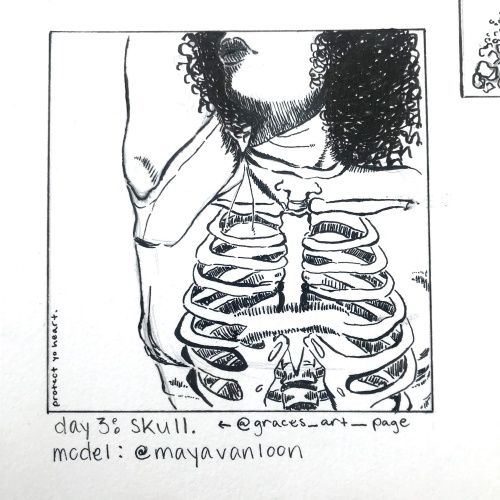 protect yo heart.
day 3: skull. ← @graces_art_page
model: @mayavanloon